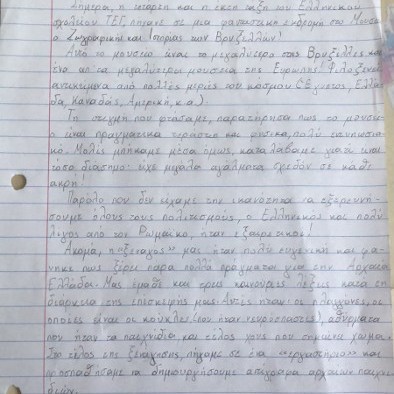 Σήμερα, η τέταρτη και η έκτη τάξη του Ελληνικού
σχολείου ΤΕΓ, πήγαμε σε μια φανταστική εκδρομή στο Μουσεί
ο Ζωγραφικής και Ιστορίας των Βρυξελλών!
Αυτό το μουσείο είναι το μεγαλύτερο στις Βρυξέλλες και
ένα απ' τα μεγαλύτερα μουσεία της Ευρώπης! Φιλοξενεί
αντικείμενα από πολλές μεριές του κόσμου (Αίγυπτος, Ελλά
δα, Καναδάς, Αμερική, κ.α.).
Τη στιγμή που φτάσαμε, παρατήρησα πως το μουσεί
ο είναι πραγματικά τεράστιο και φυσικά, πολύ εντυπωσια
κό. Μόλις μπήκαμε μέσα όμως, κατάλαβαμε γιατί είναι
τόσο διάσημο: είχε μεγάλα αγάλματα σχεδόν σε κάθε
άκρη!
Παρόλο που δεν είχαμε την ικανότητα να εξερευνή
σουμε όλους τους πολιτισμούς, ο Ελληνικός και πολύ
λίγος από τον Ρωμαϊκό, ήταν εξαιρετικός!
Ακόμα, η «ξεναγός» μας ήταν πολύ ευγενική και φά
νηκε πως ξέρει πάρα πολλά πράγματα για την Αρχαία
Ελλάδα. Μας έμαθε και τρεις καινούριες λέξεις κατά τη
διάρκεια της επίσκεψης μας. Αυτές ήταν: οι πλαγγόνες, οι
οποίες είναι οι κούκλες (σαν νευρόσπαστες), αθύρματα
που ήταν τα παιχνίδια και τέλος χους που σημαίνει χώμα.
Στο τέλος της ξενάγησης, πήγαμε σε ένα «εργαστήριο» και
προσπαθήσαμε να δημιουργήσουμε αρχαίων παιχνι
διών.